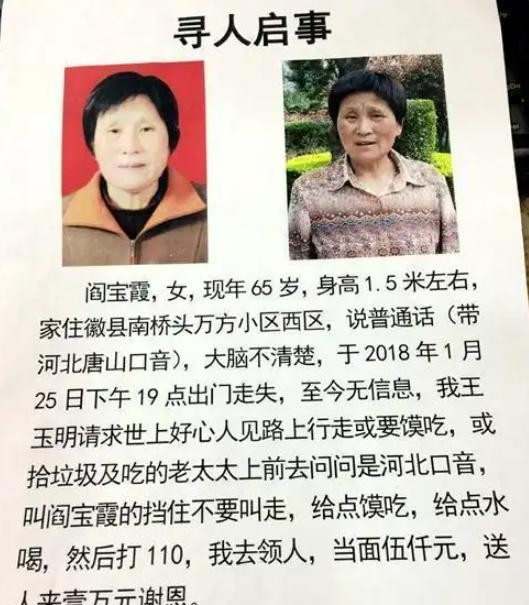 寻人启事
阎宝霞，女，现年65岁，身高1.5米左右，
家住徽县南桥头万方小区西区，说普通话（带
河北唐山口音），大脑不清楚，于2018年1月
25日下午19点出门走失，至今无信息，我王
玉明请求世上好心人见路上行走或要馍吃，或
拾垃圾及吃的老太太上前去问问是河北口音，
叫阎宝霞的挡住不要叫走，给点馍吃，给点水
喝，然后打110，我去领人，当面伍仟元，送
人来壹万元谢恩。